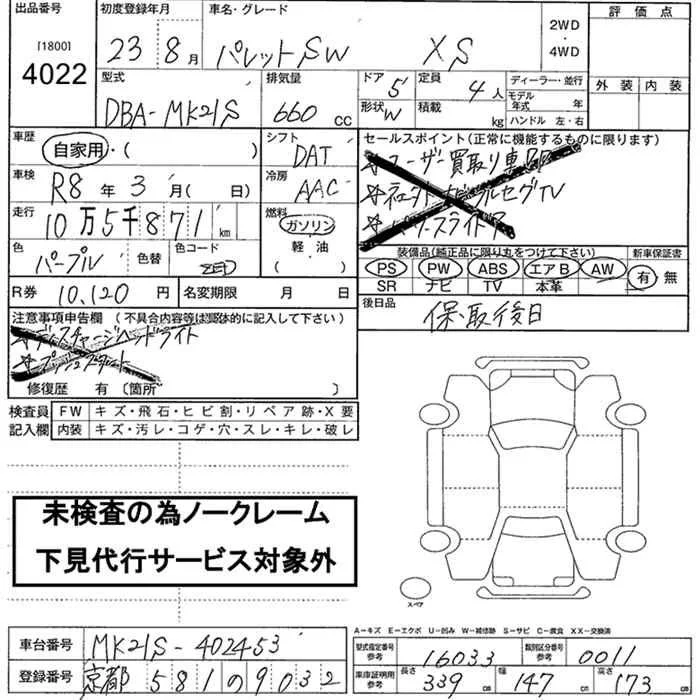 出品番号 [1800] 4022
初度登録年月 23 8月
車名・グレード パレットSW XS
2WD・4WD
評価点
外装 内装
型式 DBA-MK21S
排気量 660 CC
ドア 5
形状 W
定員 4人
積載 kg
ディーラー・並行
モデル年式 年
ハンドル 左・右
車歴 自家用・( )
シフト DAT
セールスポイント(正常に機能するものに限ります)
ユーザー買取り車
車検 R8年3月( 日)
冷房 AAC
走行 10万5千871km
燃料 ガソリン
軽・油
( )
色 パープル 色替
色コード ZED
装備品(純正品に限り丸をつけて下さい)
PS PW ABS エアB AW
SR ナビ TV 本革
新車保証書 有 無
R券 10,120円
名変期限 月 日
後日品 保、取後日
注意事項申告欄 (不具合内容等は具体的に記入して下さい)
ディスチャージヘッドライト
プッシュスタート
修復歴 有 〔箇所 〕
検査員記入欄
FW キズ・飛石・ヒビ割・リペア跡・X要
内装 キズ・汚レ・コゲ・穴・スレ・キレ・破レ
未検査の為ノークレーム
下見代行サービス対象外
スペア
A-キズ E-エクボ U-凹み W-補修跡 S-サビ C-腐食 XX-交換済
車台番号 MK21S-402453
登録番号 京都 581 の 9032
型式指定番号参考 16033
類別区分番号参考 0011
車庫証明用参考 長さ 339cm 幅 147cm 高さ 173cm